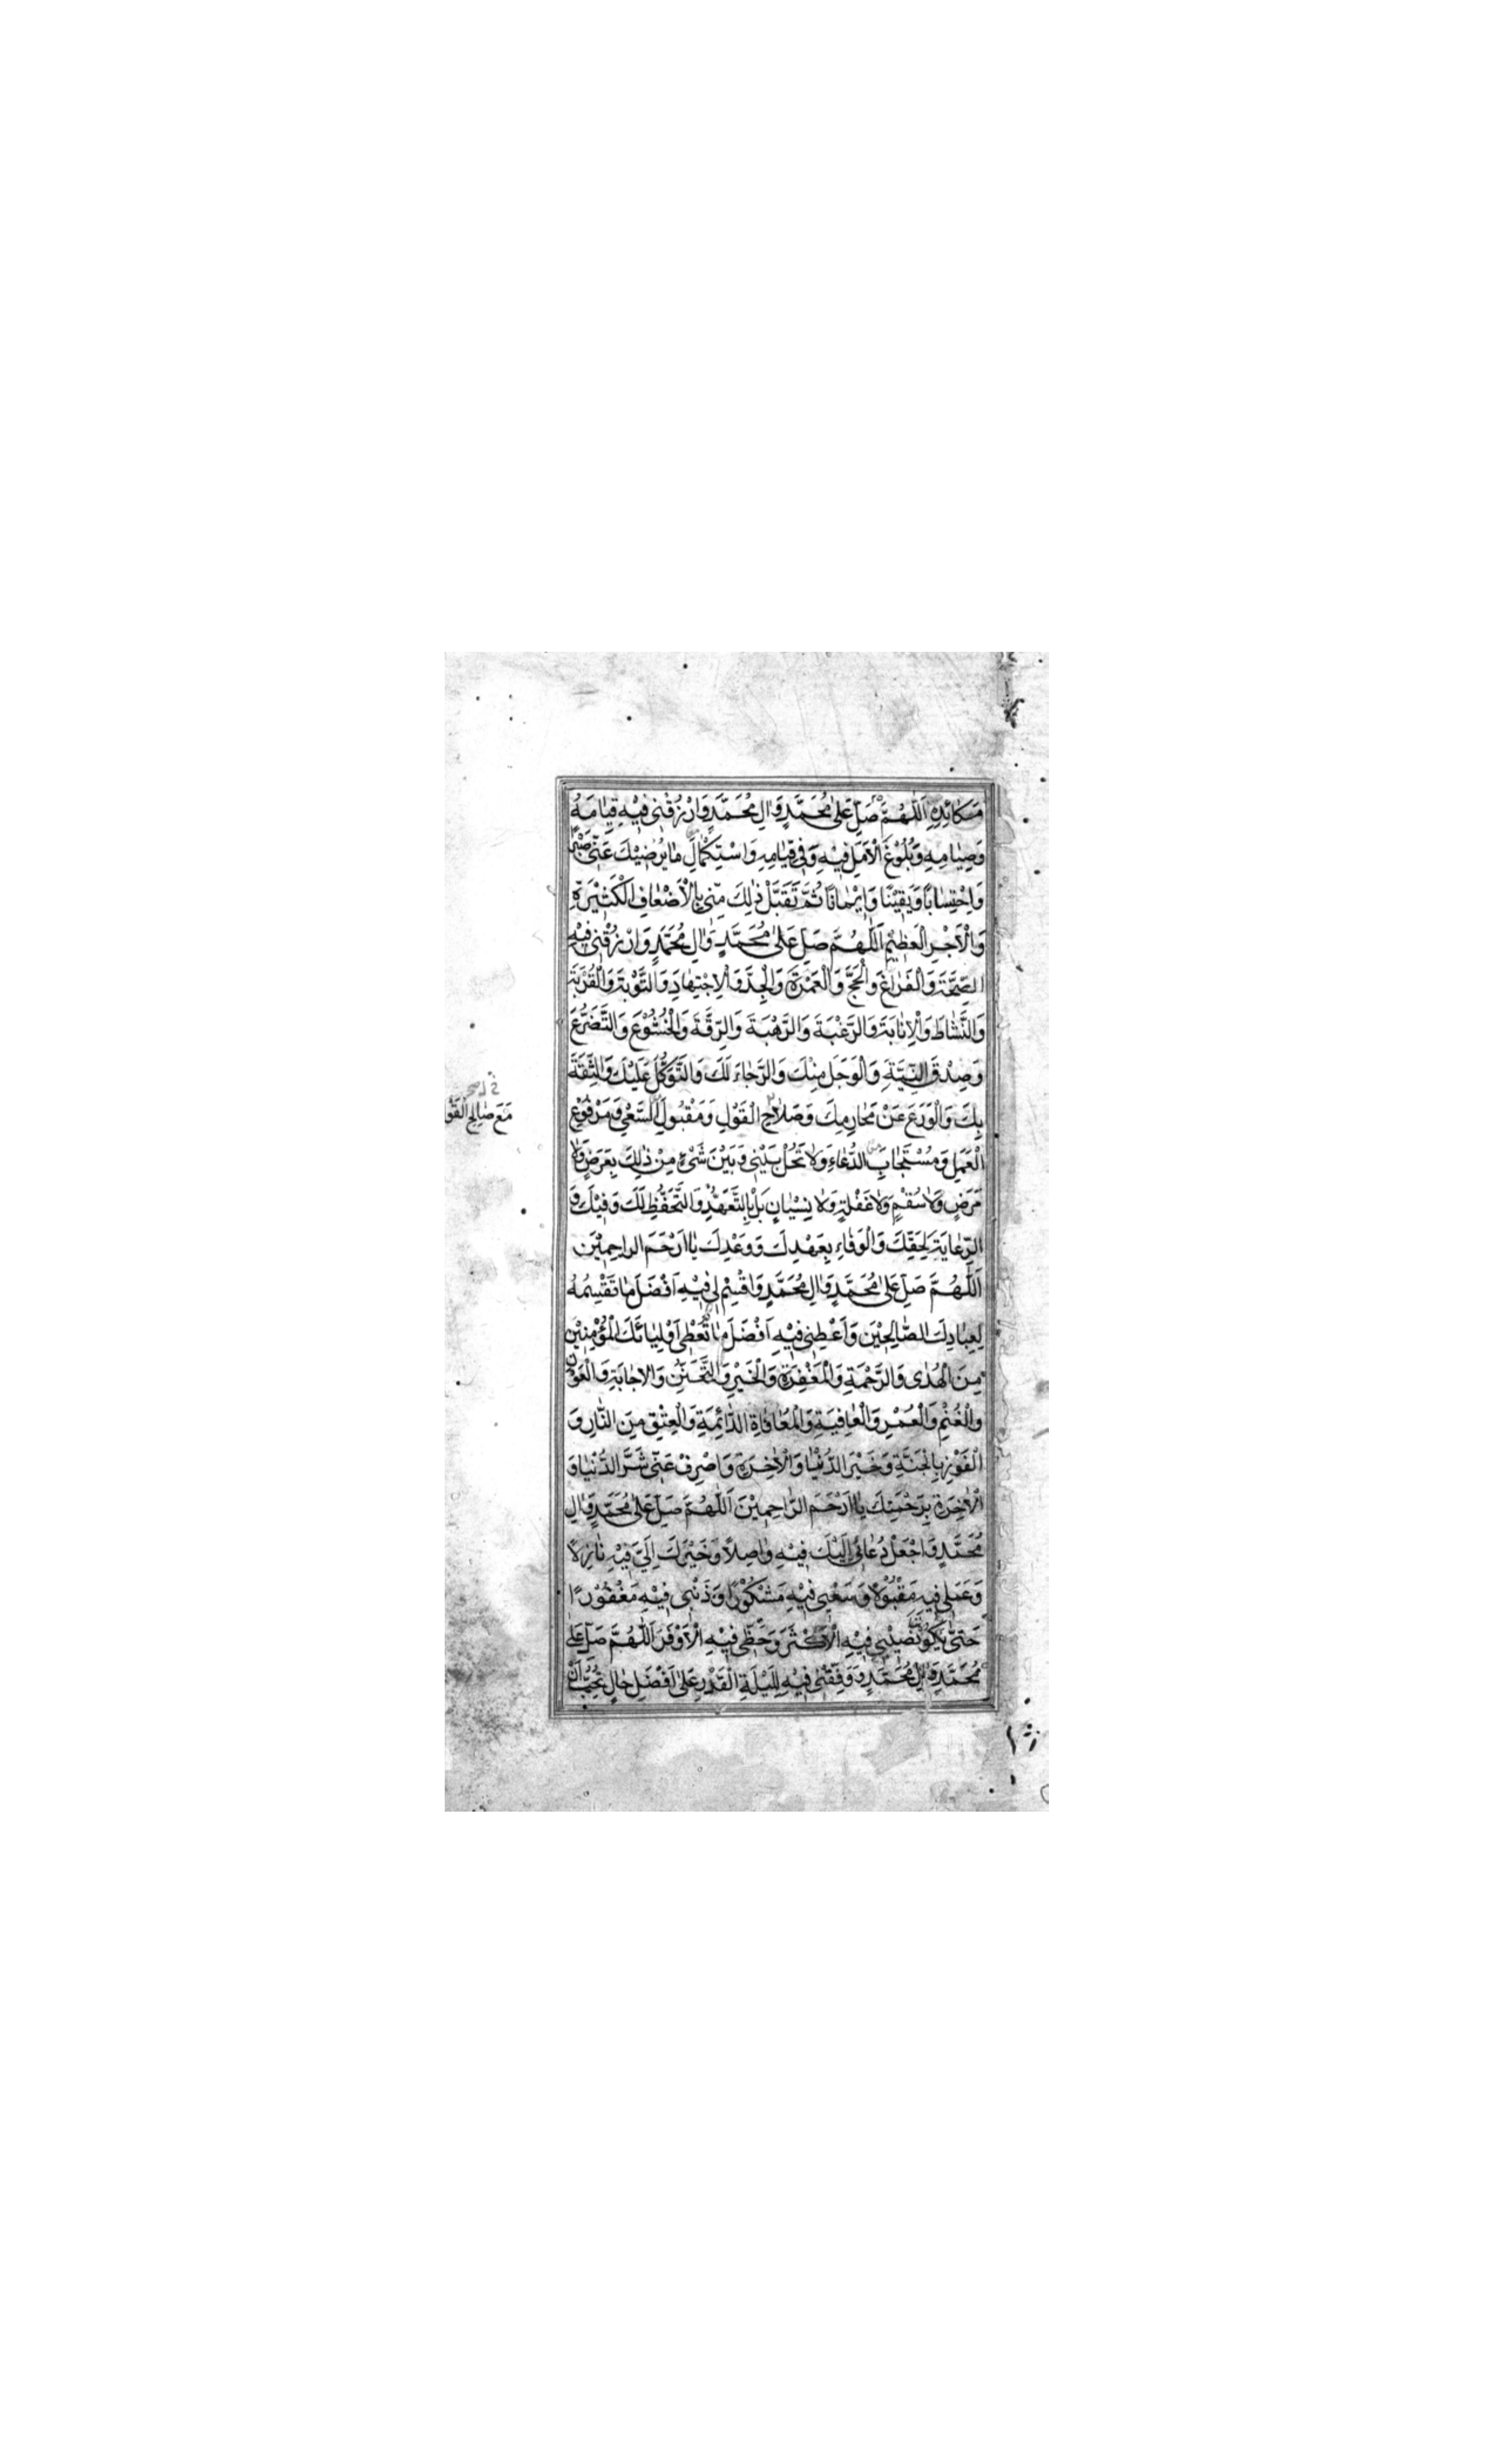 مَكَائِدِهِ اَللّٰهُمَّ صَلِّ عَلٰى مُحَمَّدٍ وَاٰلِ مُحَمَّدٍ وَارْزُقْنِى فِيْهِ قِيَامَهُ
وَصِيَامِهِ وَبُلُوْغَ الْاَمَلِ فِيْهِ وَفِى قِيَامِهِ وَاسْتِكْمَالَ مَا يُرْضِيْكَ عَنِّى صَبْرًا
وَاحْتِسَابًا وَيَقِيْنًا وَاِيْمَانًا ثُمَّ تَقَبَّلْ ذٰلِكَ مِنِّى بِالْاَضْعَافِ الْكَثِيْرَةِ
وَالْاَجْرِ الْعَظِيْمِ اَللّٰهُمَّ صَلِّ عَلٰى مُحَمَّدٍ وَاٰلِ مُحَمَّدٍ وَارْزُقْنِى فِيْهِ
الصِّحَّةَ وَالْفَرَاغَ وَالْحَجَّ وَالْعُمْرَةَ وَالْجِدَّ وَالْاِجْتِهَادَ وَالتَّوْبَةَ وَالْقُرْبَةَ
وَالنَّشَاطَ وَالْاِنَابَةَ وَالرَّغْبَةَ وَالرَّهْبَةَ وَالرِّقَّةَ وَالْخُشُوْعَ وَالتَّضَرُّعَ
وَصِدْقَ النِّيَّةِ وَالْوَجَلَ مِنْكَ وَالرَّجَاءَ لَكَ وَالتَّوَكُّلَ عَلَيْكَ وَالثِّقَةَ
بِكَ وَالْوَرَعَ عَنْ مَحَارِمِكَ وَصَلَاحِ الْقَوْلِ وَمَقْبُولِ السَّعْىِ وَمَرْفُوْعِ
مَعَ صَالِحِ الْقَوْ
الْعَمَلِ وَمُسْتَجَابِ الدُّعَاءِ وَلَا تَحُلْ بَيْنِى وَبَيْنَ شَىْءٍ مِنْ ذٰلِكَ بِعَرَضٍ وَلَا
مَرَضٍ وَلَا سُقْمٍ وَلَا غَفْلَةٍ وَلَا نِسْيَانٍ بَلْ بِالتَّعَهُّدِ وَالتَّحَفُّظِ لَكَ وَفِيْكَ وَ
الرِّعَايَةِ لِحَقِّكَ وَالْوَفَاءِ بِعَهْدِكَ وَوَعْدِكَ يَا اَرْحَمَ الرَّاحِمِيْنَ
اَللّٰهُمَّ صَلِّ عَلٰى مُحَمَّدٍ وَاٰلِ مُحَمَّدٍ وَاقْسِمْ لِى فِيْهِ اَفْضَلَ مَا تَقْسِمُهُ
لِعِبَادِكَ الصَّالِحِيْنَ وَاَعْطِنِى فِيْهِ اَفْضَلَ مَا تُعْطِى اَوْلِيَائَكَ الْمُؤْمِنِيْنَ
مِنَ الْهُدٰى وَالرَّحْمَةِ وَالْمَغْفِرَةِ وَالْخَيْرِ وَالتَّحَنُّنِ وَالْاِجَابَةِ وَالْعَوْنِ
وَالْغُنْمِ وَالْعُمْرِ وَالْعَافِيَةِ وَالْمُعَافَاةِ الدَّائِمَةِ وَالْعِتْقِ مِنَ النَّارِ وَ
الْفَوْزِ بِالْجَنَّةِ وَخَيْرِ الدُّنْيَا وَالْاٰخِرَةِ وَاصْرِفْ عَنِّى شَرَّ الدُّنْيَا وَ
الْاٰخِرَةِ بِرَحْمَتِكَ يَا اَرْحَمَ الرَّاحِمِيْنَ اَللّٰهُمَّ صَلِّ عَلٰى مُحَمَّدٍ وَاٰلِ
مُحَمَّدٍ وَاجْعَلْ دُعَائِى اِلَيْكَ فِيْهِ وَاصِلًا وَخَيْرَكَ اِلَىَّ فِيْهِ نَازِلًا
وَعَمَلِى فِيْهِ مَقْبُوْلًا وَسَعْيِى فِيْهِ مَشْكُوْرًا وَذَنْبِى فِيْهِ مَغْفُوْرًا
حَتّٰى يَكُوْنَ نَصِيْبِى فِيْهِ الْاَكْثَرَ وَحَظِّى فِيْهِ الْاَوْفَرَ اَللّٰهُمَّ صَلِّ عَلٰى
مُحَمَّدٍ وَاٰلِ مُحَمَّدٍ وَوَفِّقْنِى فِيْهِ لِلَيْلَةِ الْقَدْرِ عَلٰى اَفْضَلِ حَالٍ تُحِبُّ اَنْ